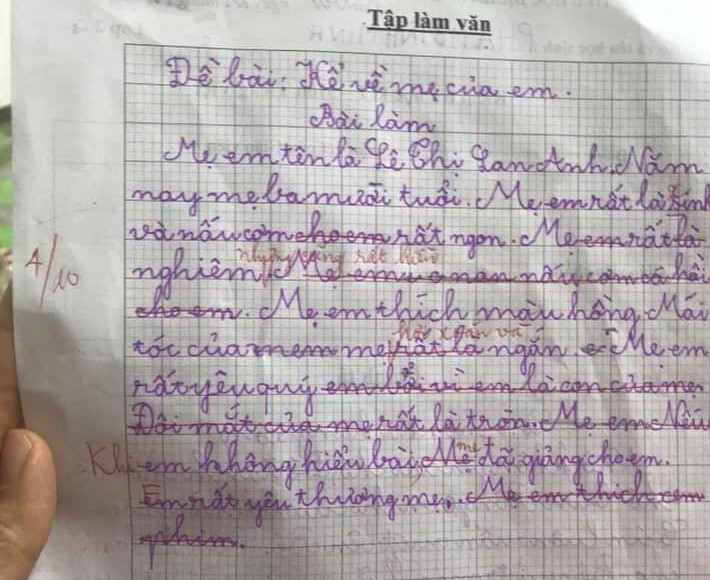 Tập làm văn
Đề bài: Kể về mẹ của em.
Bài làm
Mẹ em tên là Lê Thị Lan Anh. Năm
nay mẹ ba mươi tuổi. Mẹ em rất là xinh
và nấu cơm cho em rất ngon. Mẹ em rất là
nhưng cũng rất hiền
4/10
nghiêm. Mẹ em nấu cơm cá hồi
cho em. Mẹ em thích màu hồng. Mái
hơi xoăn và
tóc của mẹ rất là ngắn. Mẹ em
rất yêu quý em bởi vì em là con của mẹ.
Đôi mắt của mẹ rất là tròn. Mẹ em Nếu
Khi em không hiểu bài, Mẹ mẹ đã giảng cho em.
Em rất yêu thương mẹ. Mẹ em thích xem
phim.